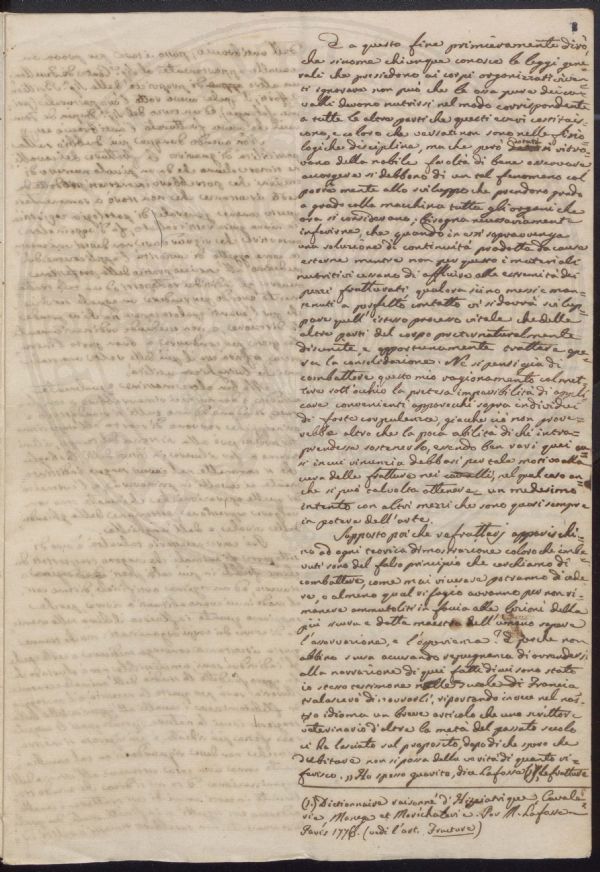 E a questo fine primieramente dirò,
che siccome chiunque conosce le leggi gene=
rali che presiedono ai corpi organizzati viven=
ti ignorare non può che le ossa pure dei ca=
valli devono nutrirsi nel modo corrispondente
a tutte le altre parti che questi esseri costituis=
cono, e coloro che versati non sono nelle fisio
logiche discipline, ma che però dotati si ritro=
vano della nobile facoltà di bene osservare
accorgere si debbono di un tal fenomeno col
porre mente allo sviluppo che prendono grado
a grado colla macchina tutti gli organi che
ora si considerano; bisogna necessariamente
inferirne, che quando in essi sopravvenga
una soluzione di continuità prodotta da causa
esterna mentre non per questo i materiali
nutritivi cessano di affluire alle estremità dei
pezzi fratturati qualora siino messi e man=
tenuti a perfetto contatto vi si dovrà svilup=
pare quell'istesso processo vitale che delle
altre parti del corpo preternaturalmente
disunite e opportunamente trattate ope=
ra la consolidazione. Nè si pensi già di
combattere questo mio ragionamento col met=
tere sott'occhio la pretesa impossibilità di appli
care convenienti apparecchi sopra individui
di forte corpulenza, giacchè ciò non prove=
rebbe altro che la poca abilità di chi intra=
prendesse sostenerlo, essendo ben rari quei ca=
si in cui rinunzia debbasi per tale motivo alla
cura delle fratture nei cavalli, nel qual caso an=
che si può talvolta ottenere un medesimo
intento con altri mezzi che sono quasi sempre
in potere dell'arte.
Supposto poi che refrattarj apparischi=
no ad ogni teorica dimostrazione coloro che imbe=
vuti sono del falso principio che cerchiamo di
combattere, come mai viceversa potranno di cede=
re, o almeno qual rifugio avranno per non ri=
manere ammutoliti in faccia alle lezioni della
più sicura e dotta maestra dell'umano sapere
l'osservazione, e l'esperienza? E perchè non
abbino scusa accusando repugnanza di arrendersi
alla narrazione di quei fatti di cui sono stato
io stesso testimone nelle Scuole di Francia
tralascerò di narrarli, riportando invece nel nos=
tro idioma un breve articolo che uno scrittore
veterinario d'oltre la metà del passato secolo
ci ha lasciato sul proposito, dopo di che spero che
dubitare non si possa della verità di quanto ri=
ferisco. „Ho spesso guarito, dice Lafosse (1) le fratture
(1) Dictionnaire raisonné d'Hippiatrique, Cavale=
rie, Manege et Marechalerie. Par M. Lafosse
Paris 1776. (vedi l'art. Fracture)